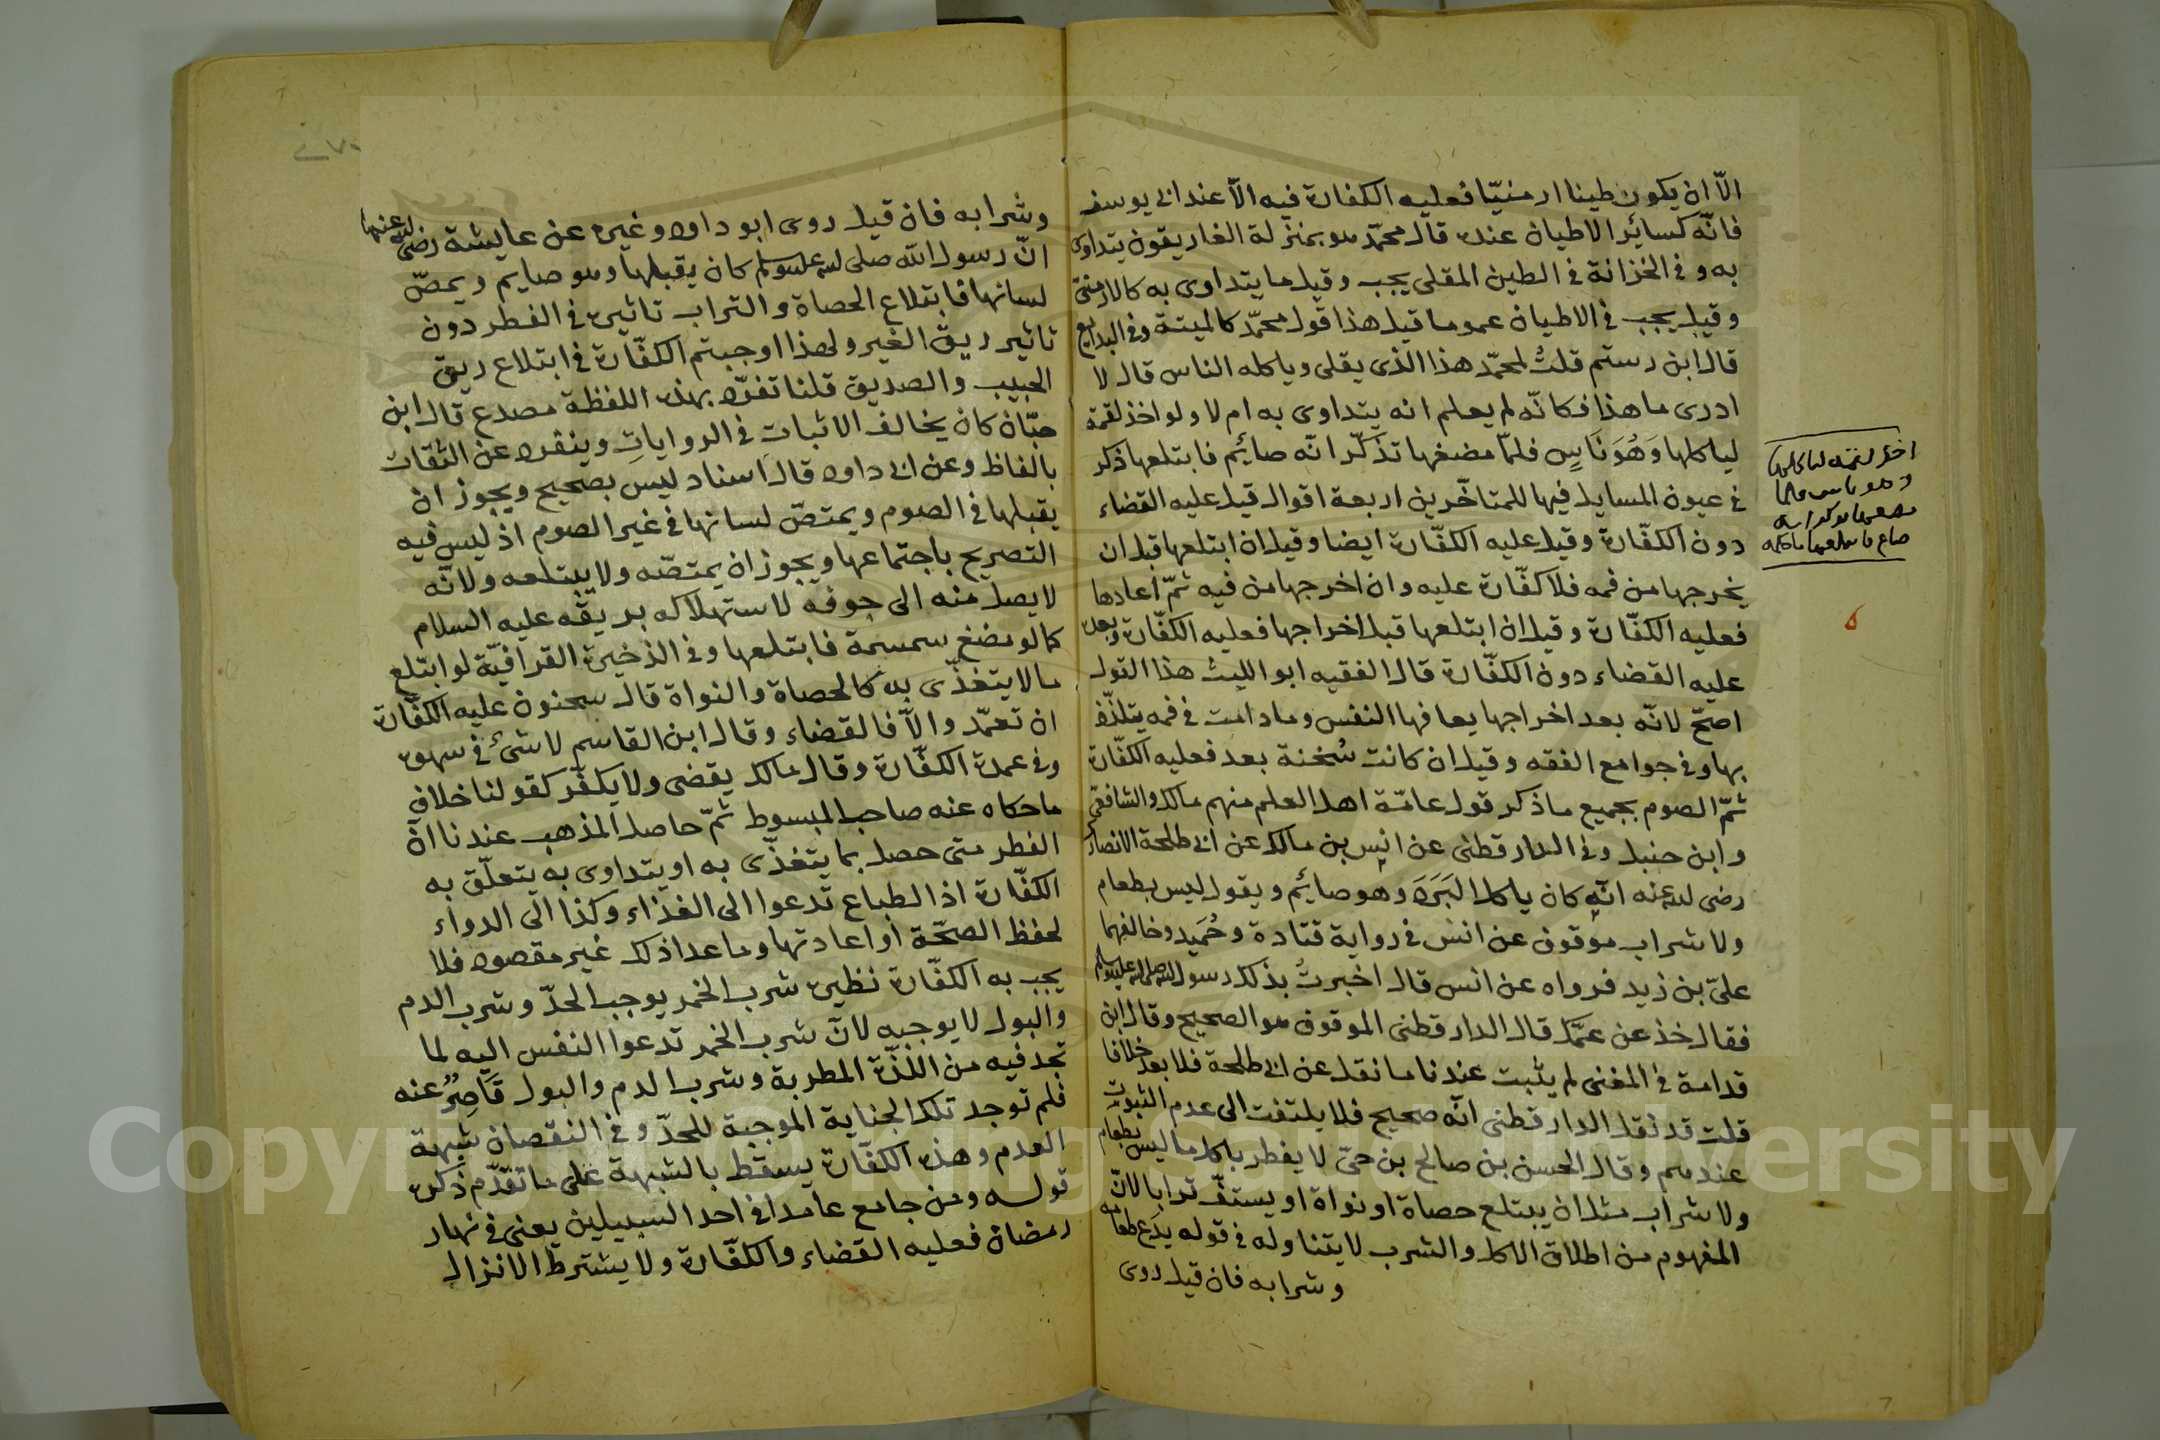 الّا ان يكون طينا ارمنيّا فعليه الكفارة فيه الّا عند ابى يوسف
فانّه كسائر الاطيان عنده قال محمّد هو بمنزلة الغاريقون يتداوى
به وفى الخزانة فى الطين المقلى يجب وقيل ما يتداوى به كالارمنى
وقيل يجب فى الاطيان عموما قيل هذا قول محمّد كالميتة وفى البدايع
قال ابن رستم قلت لمحمّد هذا الذى يقلى وياكله الناس قال لا
ادرى ما هذا فكانّه لم يعلم انه يتداوى به ام لا ولو اخذ لقمة
لياكلها وَهُوَ نَاسٍ فلمّا مضغها تذكّر انّه صائم فابتلعها ذكر
فى عيون المسايل فيها للمتاخّرين اربعة اقوال قيل عليه القضاء
دون الكفّارة وقيل عليه الكفّارة ايضا وقيل ان ابتلعها قبل ان
يخرجها من فمه فلا كفّارة عليه وان اخرجها من فيه ثمّ اعادها
فعليه الكفّارة وقيل ان ابتلعها قبل اخراجها فعليه الكفّارة وبعده
عليه القضاء دون الكفّارة قال الفقيه ابو الليث هذا القول
اصحّ لانّه بعد اخراجها يعافها النفس وما دامت فى فمه يتلذّذ
بها وفى جوامع الفقه وقيل ان كانت سُخنة بعد فعليه الكفّارة
ثمّ الصوم بجميع ما ذكر قول عامّة اهل العلم منهم مالك والشافعى
وابن حنبل وفى الدارقطنى عن انس بن مالك عن ابى طلحة الانصارى
رضى الله عنه انّه كان ياكل البَرَدَ وهو صائم ويقول ليس بطعام
ولا شراب موقوف عن انس فى رواية قتادة وحُمَيد وخالفهما
علىّ بن زيد فرواه عن انس قال اخبرتُ بذلك رسول الله صلى الله عليه وسلم
فقال خذ عن عمّك قال الدارقطنى الموقوف هو الصحيح وقال ابن
قدامة فى المغنى لم يثبت عندنا ما نقل عن ابى طلحة فلا يعد خلافا
قلت قد نقل الدارقطنى انّه صحيح فلا يلتفت الى عدم الثبوت
عندهم وقال الحسن بن صالح بن حىّ لا يفطر باكل ما ليس بطعام
ولا شراب مثل ان يبتلع حصاة او نواة او يستفّ ترابا لانّ
المفهوم من اطلاق الاكل والشرب لا يتناوله فى قوله يدَع طعامه
وشرابه فان قيل روى
اخذ لقمة لياكلها
وهو ناس فلما
مضغها تذكر انه
صائم فابتلعها
وشرابه فان قيل روى ابو داود وغيره عن عايشة رضى الله عنها
انّ رسول الله صلى الله عليه وسلم كان يقبلها وهو صايم ويمصّ
لسانها فابتلاع الحصاة والتراب تاثيره فى الفطر دون
تاثير ريق الغير ولهذا اوجبتم الكفّارة فى ابتلاع ريق
الحبيب والصديق قلنا تفرّد بهذه اللفظة مصدع قال ابن
حبّان كان يخالف الاثبات فى الروايات وينفرد عن الثقات
بالفاظ وعن ابى داود قال اسناد ليس بصحيح ويجوز ان
يقبلها فى الصوم ويمتصّ لسانها فى غير الصوم اذ ليس فيه
التصريح باجتماعها ويجوز ان يمتصّه ولا يبتلعه ولانّه
لا يصل منه الى جوفه لاستهلاكه بريقه عليه السلام
كما لو مضغ سمسمة فابتلعها وفى الذخيرة القرافيّة لو ابتلع
ما لا يتغذّى به كالحصاة والنواة قال سحنون عليه الكفّارة
ان تعمّد والّا فالقضاء وقال ابن القاسم لا شىء فى سهوه
وفى عمده الكفّارة وقال مالك يقضى ولا يكفّر كقولنا خلاف
ما حكاه عنه صاحب المبسوط ثمّ حاصل المذهب عندنا انّ
الفطر متى حصل بما يتغذّى به او يتداوى به يتعلّق به
الكفّارة اذ الطباع تدعوا الى الغذاء وكذا الى الدواء
لحفظ الصحّة او اعادتها وما عدا ذلك غير مقصود فلا
يجب به الكفّارة نظيره شرب الخمر يوجب الحدّ وشرب الدم
والبول لا يوجبه لانّ شرب الخمر تدعوا النفس اليه لما
تجد فيه من اللذّة المطربة وشرب الدم والبول قَاصِرٌ عنه
فلم توجد تلك الجناية الموجبة للحدّ وفى النقصان شبهة
العدم وهذه الكفّارة يسقط بالشبهة على ما تقدّم ذكره
قوله ومن جامع عامدا فى احد السبيلين يعنى فى نهار
رمضان فعليه القضاء والكفّارة ولا يشترط الانزال
Copyright © King Saud University